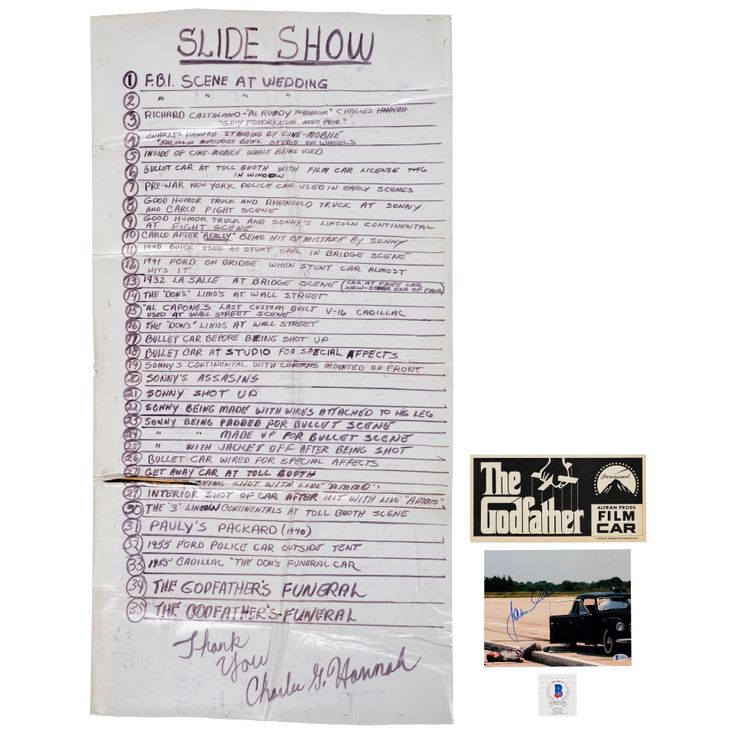 SLIDE SHOW
1 F.B.I. SCENE AT WEDDING
2 " " " "
3 RICHARD CASTALANO - "AL RUDDY CHARLES HANNAH
"GARY FREDRICKSON ASST. PROD."
4 CHARLES HANNAH STANDING BY CINE-MOBILE
"500,000.00 MERCEDES BENZ STUDIO ON WHEELS
5 INSIDE OF CINE-MOBILE WHILE BEING USED
6 BULLET CAR AT TOLL BOOTH WITH FILM CAR LICENSE TAG
IN WINDOW
7 PRE-WAR NEW YORK POLICE CAR USED IN EARLY SCENES
8 GOOD HUMOR TRUCK AND RHEINGOLD TRUCK AT SONNY
AND CARLO FIGHT SCENE
9 GOOD HUMOR TRUCK AND SONNY'S LINCOLN CONTINENTAL
AT FIGHT SCENE
10 CARLO AFTER "REALLY" BEING HIT BY MISTAKE BY SONNY
11 1940 BUICK USED AS STUNT CAR IN BRIDGE SCENE
12 1941 FORD ON BRIDGE WHEN STUNT CAR ALMOST
HITS IT
13 1932 LA SALLE AT BRIDGE SCENE (CAR AT FREE CAR
SHOW-OTHER END OF FAIR)
14 THE "DON'S" LIMO'S AT WALL STREET
15 "AL CAPONE'S LAST CUSTOM BUILT V-16 CADILLAC
USED AT WALL STREET SCENE
16 THE "DON'S" LIMOS AT WALL STREET
17 BULLET CAR BEFORE BEING SHOT UP
18 BULLET CAR AT STUDIO FOR SPECIAL AFFECTS
19 SONNY'S CONTINENTAL WITH CAMERAS MOUNTED ON FRONT
20 SONNY'S ASSASINS
21 SONNY SHOT UP
22 SONNY BEING MADE WITH WIRES ATTACHED TO HIS LEG
23 SONNY BEING PADDED FOR BULLET SCENE
24 " " MADE UP FOR BULLET SCENE
25 " " WITH JACKET OFF AFTER BEING SHOT
26 BULLET CAR WIRED FOR SPECIAL AFFECTS
27 GET AWAY CAR AT TOLL BOOTH
BEING SHOT WITH LIVE "AMMO"
29 INTERIOR SHOT OF CAR AFTER HIT WITH LIVE "AMMO"
30 THE "3" LINCOLN CONTINENTALS AT TOLL BOOTH SCENE
31 PAULY'S PACKARD (1940)
32 1955 FORD POLICE CAR OUTSIDE TENT
33 1955 CADILLAC "THE DON'S FUNERAL CAR
34 THE GODFATHER'S FUNERAL
35 THE GODFATHER'S FUNERAL
Thank
You
Charles G. Hannah
The
Godfather
Paramount
ALFRAN PRODS
FILM
CAR